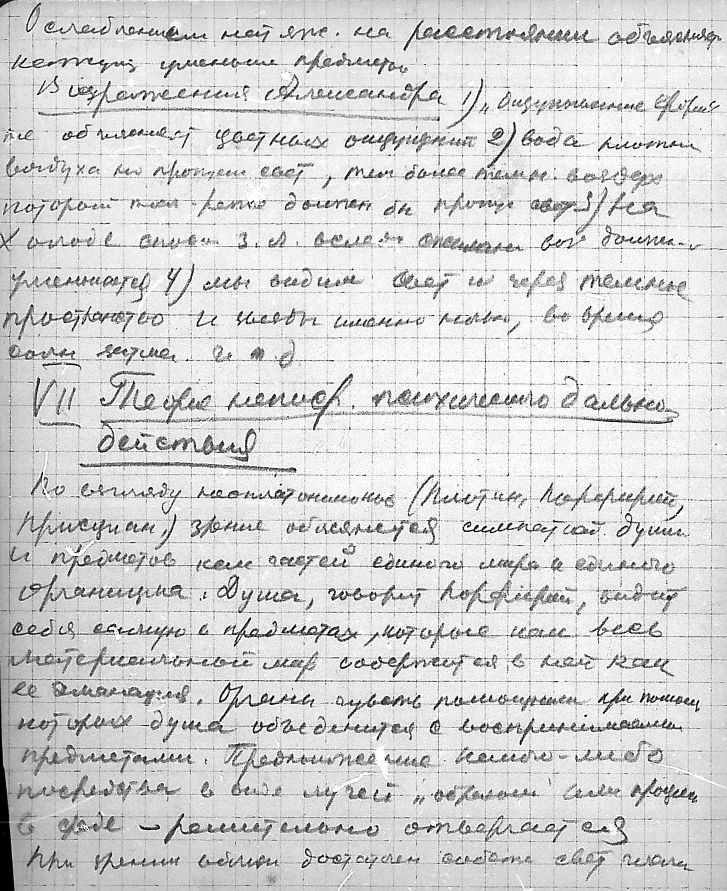 Ослаблением натяж. на расстоянии объясняется
кажущ. уменьш. предметов
Возражения Александра 1) „Ощупывание"
не объясняет цветных ощущений 2) вода плотнее
воздуха но пропуск свет, тем более темн. воздух
который тоже должен бы пропус свет 3) На
холоде з. л. вслед. вод должн
уменьшатся 4) мы видим свет и через темное
пространство и звезды именно ночью, во время
солн затм. и т д.
VII Теория непоср. психического дально-
действия
По взгляду неоплатоников (Плотин, Порфирий,
Присциан,) зрение объясняется симпатией души
и предметов как частей единого мира и единого
организма. Душа, говорит Порфирий, видит
себя самую в предметах, которые как весь
материальный мир содержится в ней как
ее эманация. Органы чувств при помощи
которых душа объединится с воспринимаемыми
предметами. Предположение какого-либо
посредства в виде лучей „образов" или процесса
в среде – решительно отвергается
При зрении вблизи достаточен свет